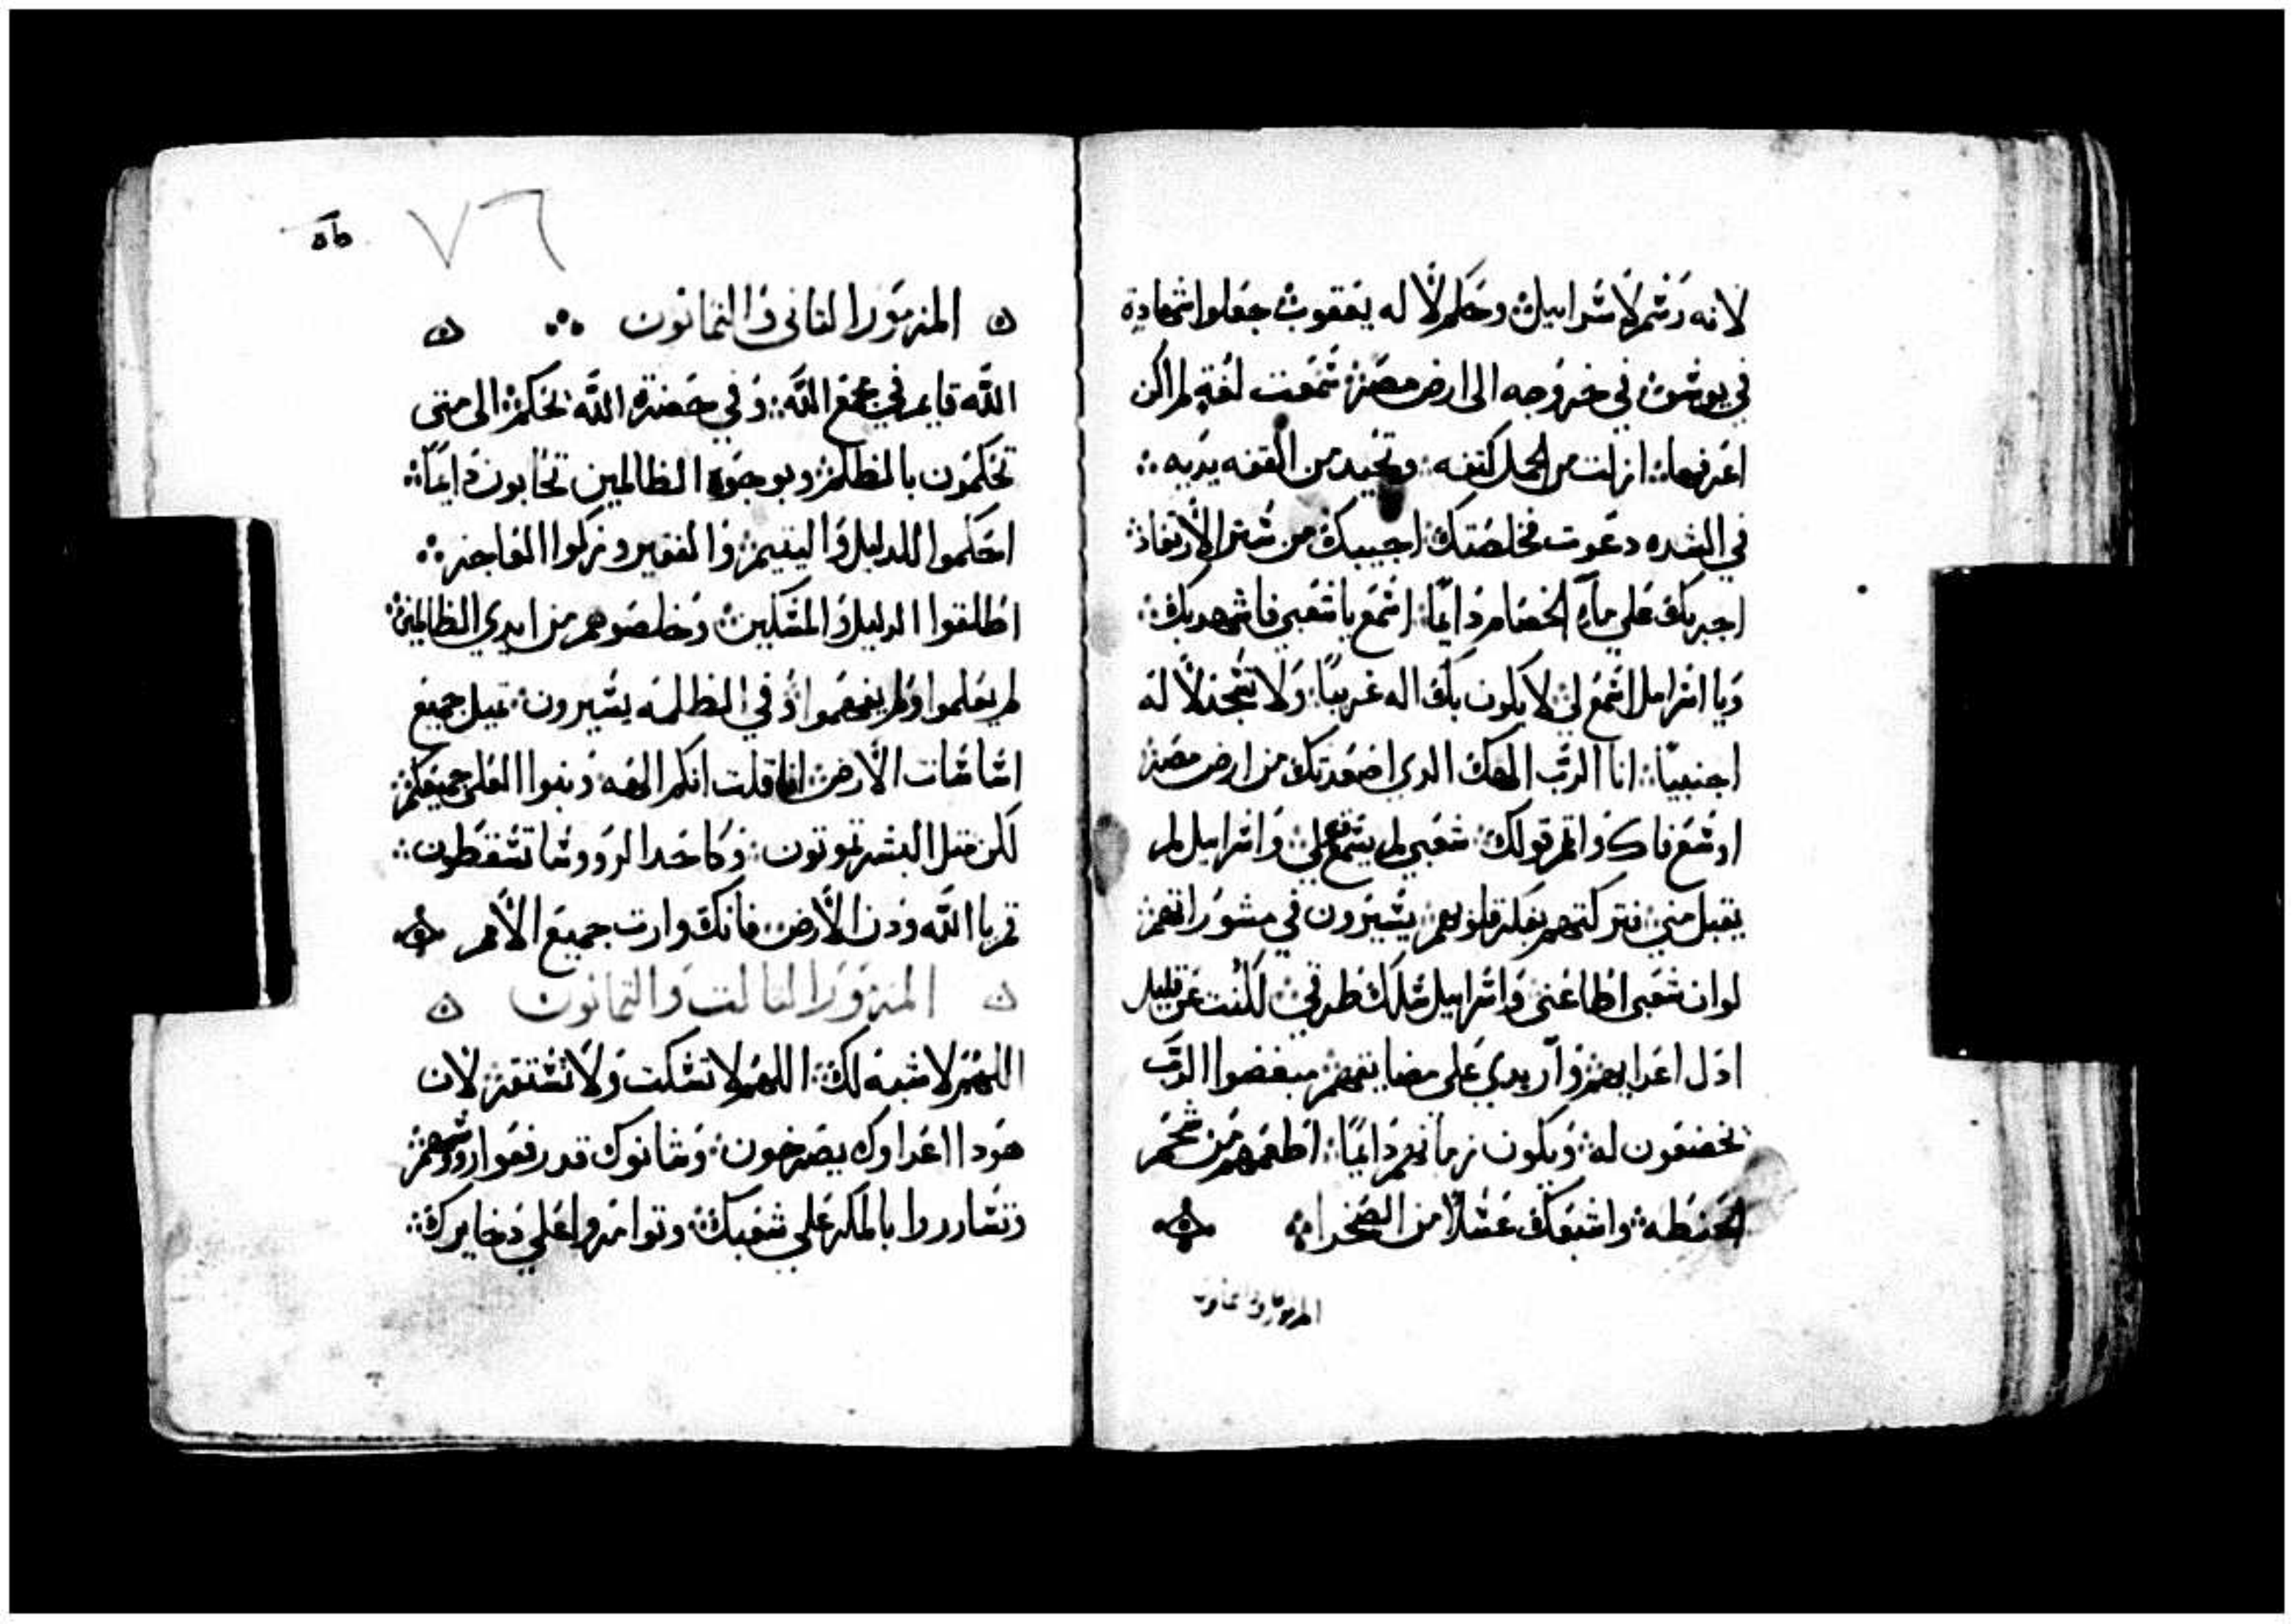 لانه رسم لاسراييل وحكم لاله يعقوب جعلوا شهادة
في يوسف في خروجه الى ارض مصر سمعت لغة لم اكن
اعرفها ازلت من الحمل كتفه وتخيد من القفه يديه
في الشده دعوت فخلصتك اجيبك من ستر الارتعاد
اجربك على مآء الخصام دايمًا اسمع يا شعبي فاشهد بك
ويا اسراييل اسمع لي لا يكون بك اله غريبًا ولا تسجد لاله
اجنبيًا انا الرب الهك الدي اصعدتك من ارض مصر
اوسع فاك واتم قولك شعبي لم يسمع لي واسراييل لم
يقبل مني فتركتهم بفكر قلوبهم يسيرون في مشوراتهم
لو ان شعبي اطاعني واسراييل سلك طرقي لكنت عن قليل
ادل اعدايهم وارد يدي على مضايقيهم مبغضوا الرب
يخضعون له ويكون زمانهم دايمًا اطعمهم من شحم
الحنطه واشبعك عسلًا من الصخرا
المزمور الثاني والثمانون
٧٦
المزمور الثاني والثمانون
الله قايم في مجمع الله وفي حضرة الله يحكم الى متى
تحكمون بالظلم وبوجوه الظالمين تحابون دايمًا
احكموا للدليل واليتيم والفقير وزكوا الفاجر
اطلقوا الدليل والمسكين وخلصوهم من ايدي الظالمين
لم يعلموا ولم يفهموا وفي الظلمه يسيرون تميل جميع
اساسات الارض انا قلت انكم الهه وبنوا العلى جميعكم
لكن مثل البشر تموتون وكاحد الرووسا تسقطون
قم يا الله ودن الارض فانك وارث جميع الامم
المزمور الثالث والثمانون
اللهم لا شبه لك اللهم لا تسكت ولا تستقر لان
هودا اعداوك يصرخون وشانوك قد رفعوا رووسهم
وتسارروا بالمكر على شعبك وتوامروا على دخايرك